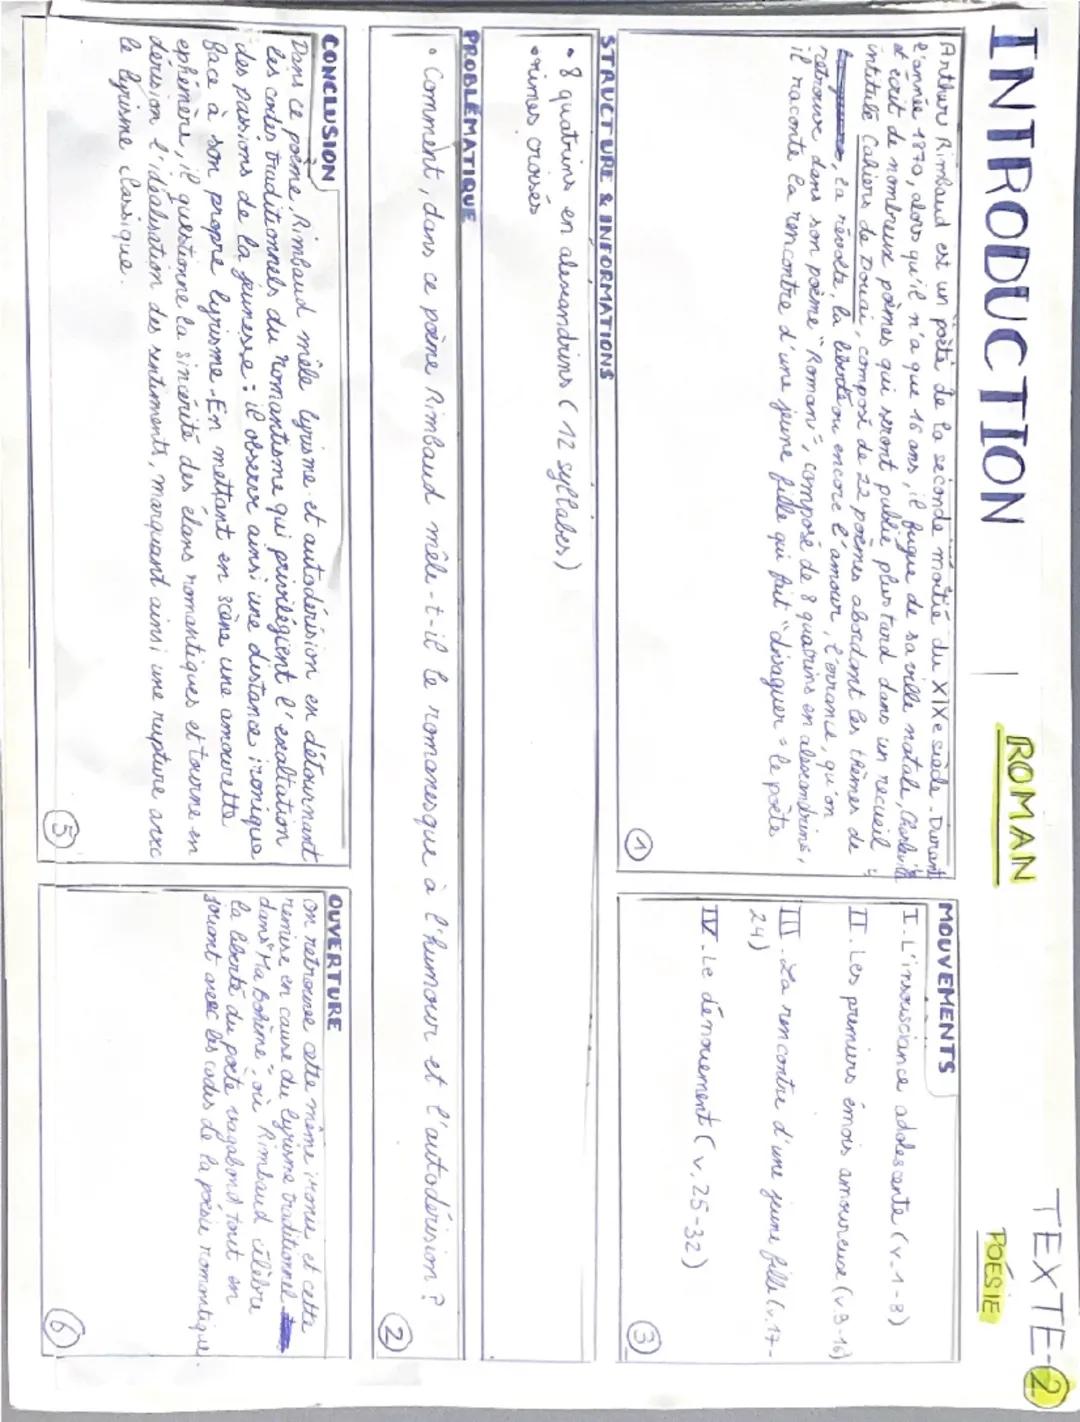 TEXTE-2
INTRODUCTION | ROMAN
POÉSIE
Arthur Rimbaud est un poète de la seconde moitié du XIXe siècle. Durant
l'année 1870, alors qu'il n'a que 16 ans, il fugue de sa ville natale, Charleville
et écrit de nombreux poèmes qui seront publié plus tard dans un recueil
intitulé Cahiers de Douai, composé de 22 poèmes abordant les thèmes de
, la révolte, la liberté ou encore l'amour, l'errance, qu'on
retrouve dans son poème "Roman", composé de 8 quatrins en alexandrins,
il raconte la rencontre d'une jeune fille qui fait "divaguer" le poète
1
MOUVEMENTS
I. L'insousciance adolescente (v.1-8)
II. Les premiers émois amoureuse (v.9-16)
III. La rencontre d'une jeune fille (v.17-
24)
IV. Le dénouement (v.25-32)
3
STRUCTURE & INFORMATIONS
• 8 quatrins en alexandrins (12 syllabes)
• rimes croisés
PROBLÉMATIQUE
• Comment, dans ce poème Rimbaud mêle-t-il le romanesque à l'humour et l'autodérision ?
2
CONCLUSION
Dans ce poème, Rimbaud mêle lyrisme et autodérision en détournant
les codes traditionnels du romantisme qui privilégient l'exaltation
des passions de la jeunesse : il observe ainsi une distance ironique
face à son propre lyrisme. En mettant en scène une amourette
éphémère, il questionne la sincérité des élans romantiques et tourne en
dérision l'idéalisation des sentiments, marquant ainsi une rupture avec
le lyrisme classique.
5
OUVERTURE
on retrouve cette même ironie et cette
remise en cause du lyrisme traditionnel
dans "Ma Bohème", où Rimbaud célèbre
la liberté du poète vagabond tout en
jouant avec les codes de la poésie romantique.
6